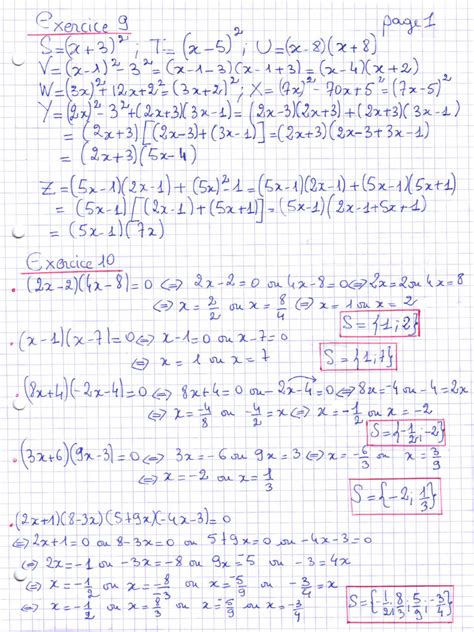 Exercice 9
page 1
S=(x+3)² ; T=(x-5)² ; U=(x-8)(x+8)
V=(x-1)²-3²=(x-1-3)(x-1+3)=(x-4)(x+2)
W=(3x)²+12x+2²=(3x+2)² ; X=(7x)²-70x+5²=(7x-5)²
Y=(2x)²-3²+(2x+3)(3x-1)=(2x-3)(2x+3)+(2x+3)(3x-1)
=(2x+3)[(2x-3)+(3x-1)]=(2x+3)(2x-3+3x-1)
=(2x+3)(5x-4)
Z=(5x-1)(2x-1)+(5x)²-1=(5x-1)(2x-1)+(5x-1)(5x+1)
=(5x-1)[(2x-1)+(5x+1)]=(5x-1)(2x-1+5x+1)
=(5x-1)(7x)
Exercice 10
. (2x-2)(4x-8)=0 ⇔ 2x-2=0 ou 4x-8=0 ⇔ 2x=2 ou 4x=8
⇔ x=2/2 ou x=8/4 ⇔ x=1 ou x=2
S={1;2}
. (x-1)(x-7)=0 ⇔ x-1=0 ou x-7=0
⇔ x=1 ou x=7
S={1;7}
. (8x+4)(-2x-4)=0 ⇔ 8x+4=0 ou -2x-4=0 ⇔ 8x=-4 ou -4=2x
⇔ x=-4/8 ou -4/2=x ⇔ x=-1/2 ou x=-2
S={-1/2;-2}
. (3x+6)(9x-3)=0 ⇔ 3x=-6 ou 9x=3 ⇔ x=-6/3 ou x=3/9
⇔ x=-2 ou x=1/3
S={-2;1/3}
. (2x+1)(8-3x)(5+9x)(-4x-3)=0
⇔ 2x+1=0 ou 8-3x=0 ou 5+9x=0 ou -4x-3=0
⇔ 2x=-1 ou -3x=-8 ou 9x=-5 ou -3=4x
⇔ x=-1/2 ou x=-8/-3 ou x=-5/9 ou -3/4=x
⇔ x=-1/2 ou x=8/3 ou x=-5/9 ou x=-3/4
S={-1/2;8/3;-5/9;-3/4}